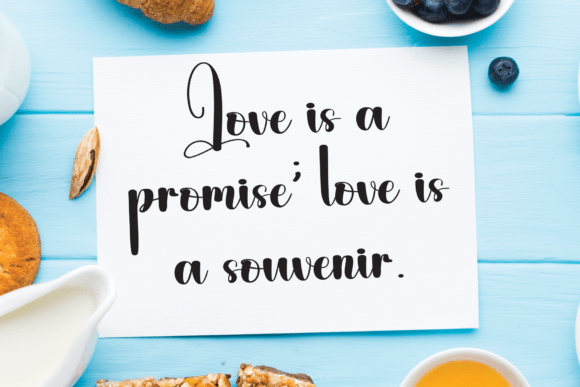 Love is a
promise; love is
a souvenir.